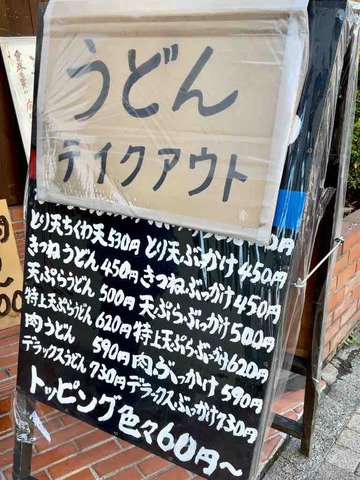 うどん
テイクアウト
とり天ちくわ天530円 とり天ぶっかけ450円
きつねうどん450円 きつねぶっかけ450円
天ぷらうどん 500円 天ぷらぶっかけ500円
特上天ぷらうどん620円 特上天ぷらぶっかけ620円
肉うどん 590円 肉ぶっかけ 590円
デラックスうどん730円 デラックスぶっかけ730円
トッピング色々60円〜